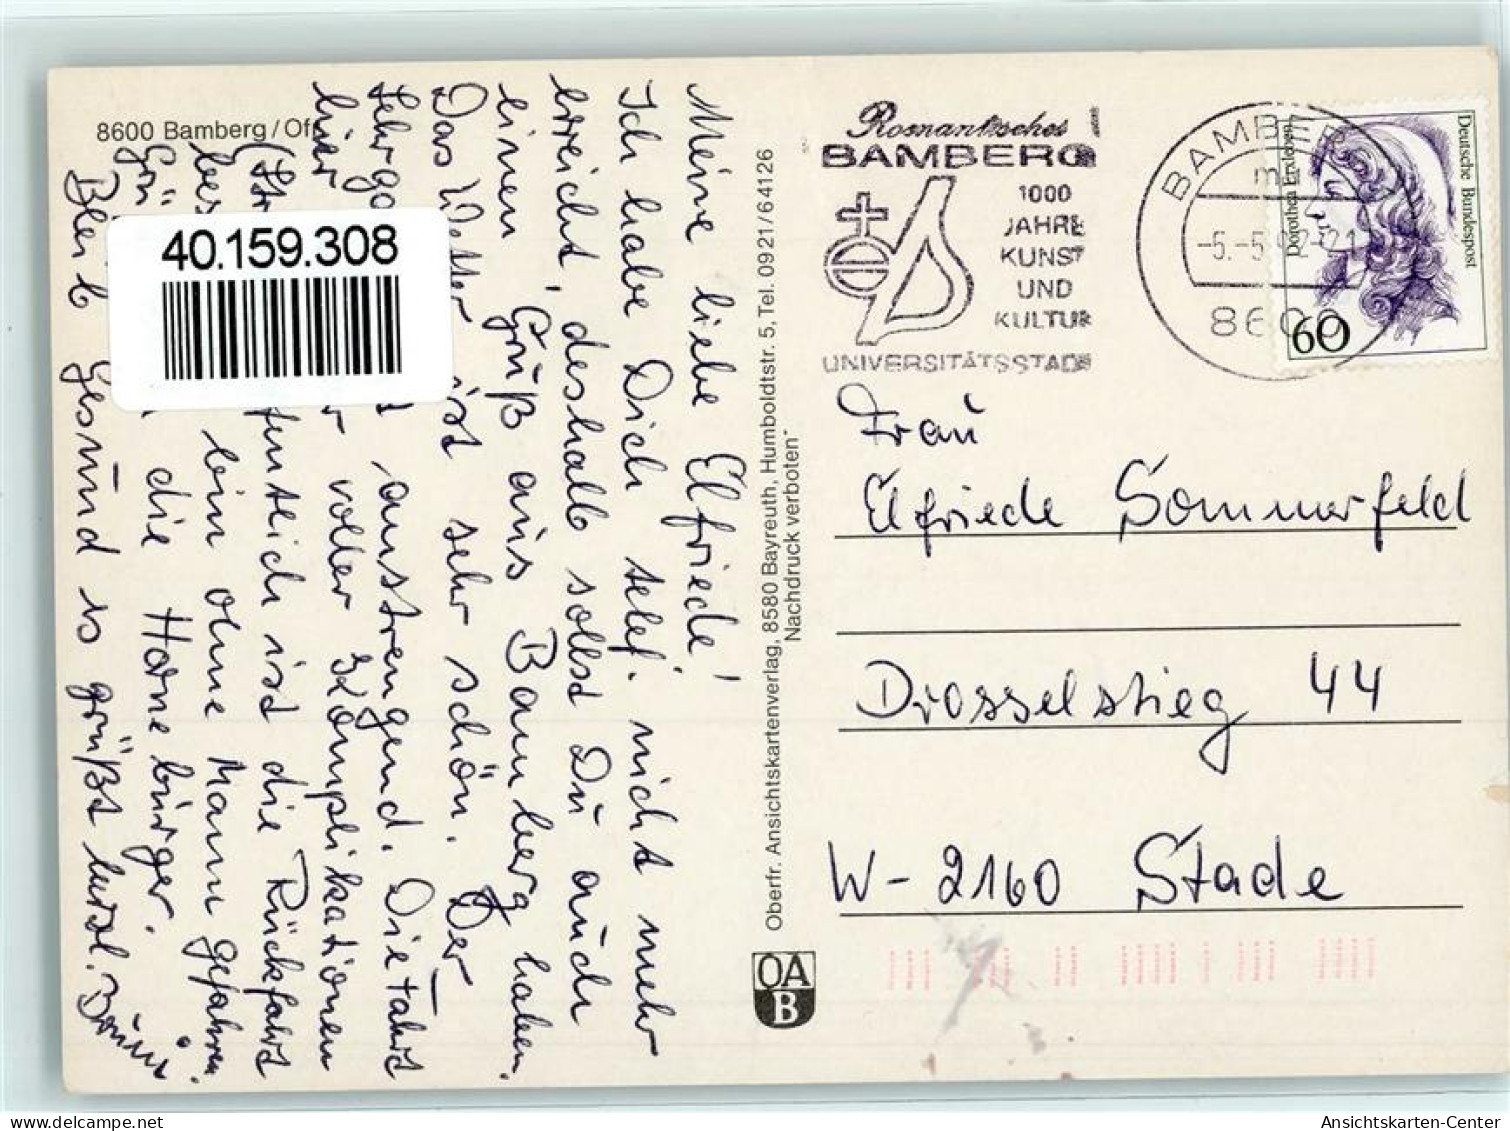 8600 Bamberg/Ofr.
40.159.308
Meine liebe Elfriede!
Ich habe Dich telef. nicht mehr
erreicht, deshalb sollst Du auch
einen Gruß aus Bamberg haben.
Das Wetter ist sehr schön. Der
anstrengend. Die Fahrt
hier voller Komplikationen
ist die Rückfahrt
bin ohne Mann gefahren.
die Horneburger.
Bleib Gesund es grüßt herzl.
Oberfr. Ansichtskartenverlag, 8580 Bayreuth, Humboldtstr. 5, Tel. 0921/64126
Nachdruck verboten
OA
B
Romantisches
BAMBERG
1000
JAHRE
KUNST
UND
KULTUR
UNIVERSITÄTSSTADT
BAMBERG
-5.-5.92-21
8600
Deutsche Bundespost
Dorothea Erxleben
60
Frau
Elfriede Sommerfeld
Drosselstieg 44
W-2160 Stade
Ansichtskarten-Center
www.delcampe.net